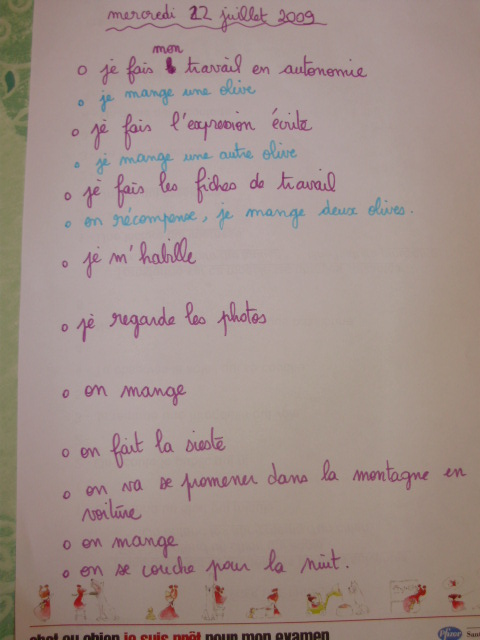 mercredi 22 juillet 2009
mon
o je fais travail en autonomie
o je mange une olive
o je fais l'expression écrite
o je mange une autre olive
o je fais les fiches de travail
o en récompense, je mange deux olives.
o je m'habille
o je regarde les photos
o on mange
o on fait la sieste
o on va se promener dans la montagne en
voiture
o on mange
o on se couche pour la nuit.
chat ou chien je suis prêt pour mon examen
Pfizer